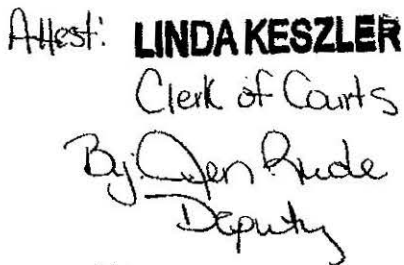 Attest: LINDA KESZLER
Clerk of Courts
By: Jen Rude
Deputy